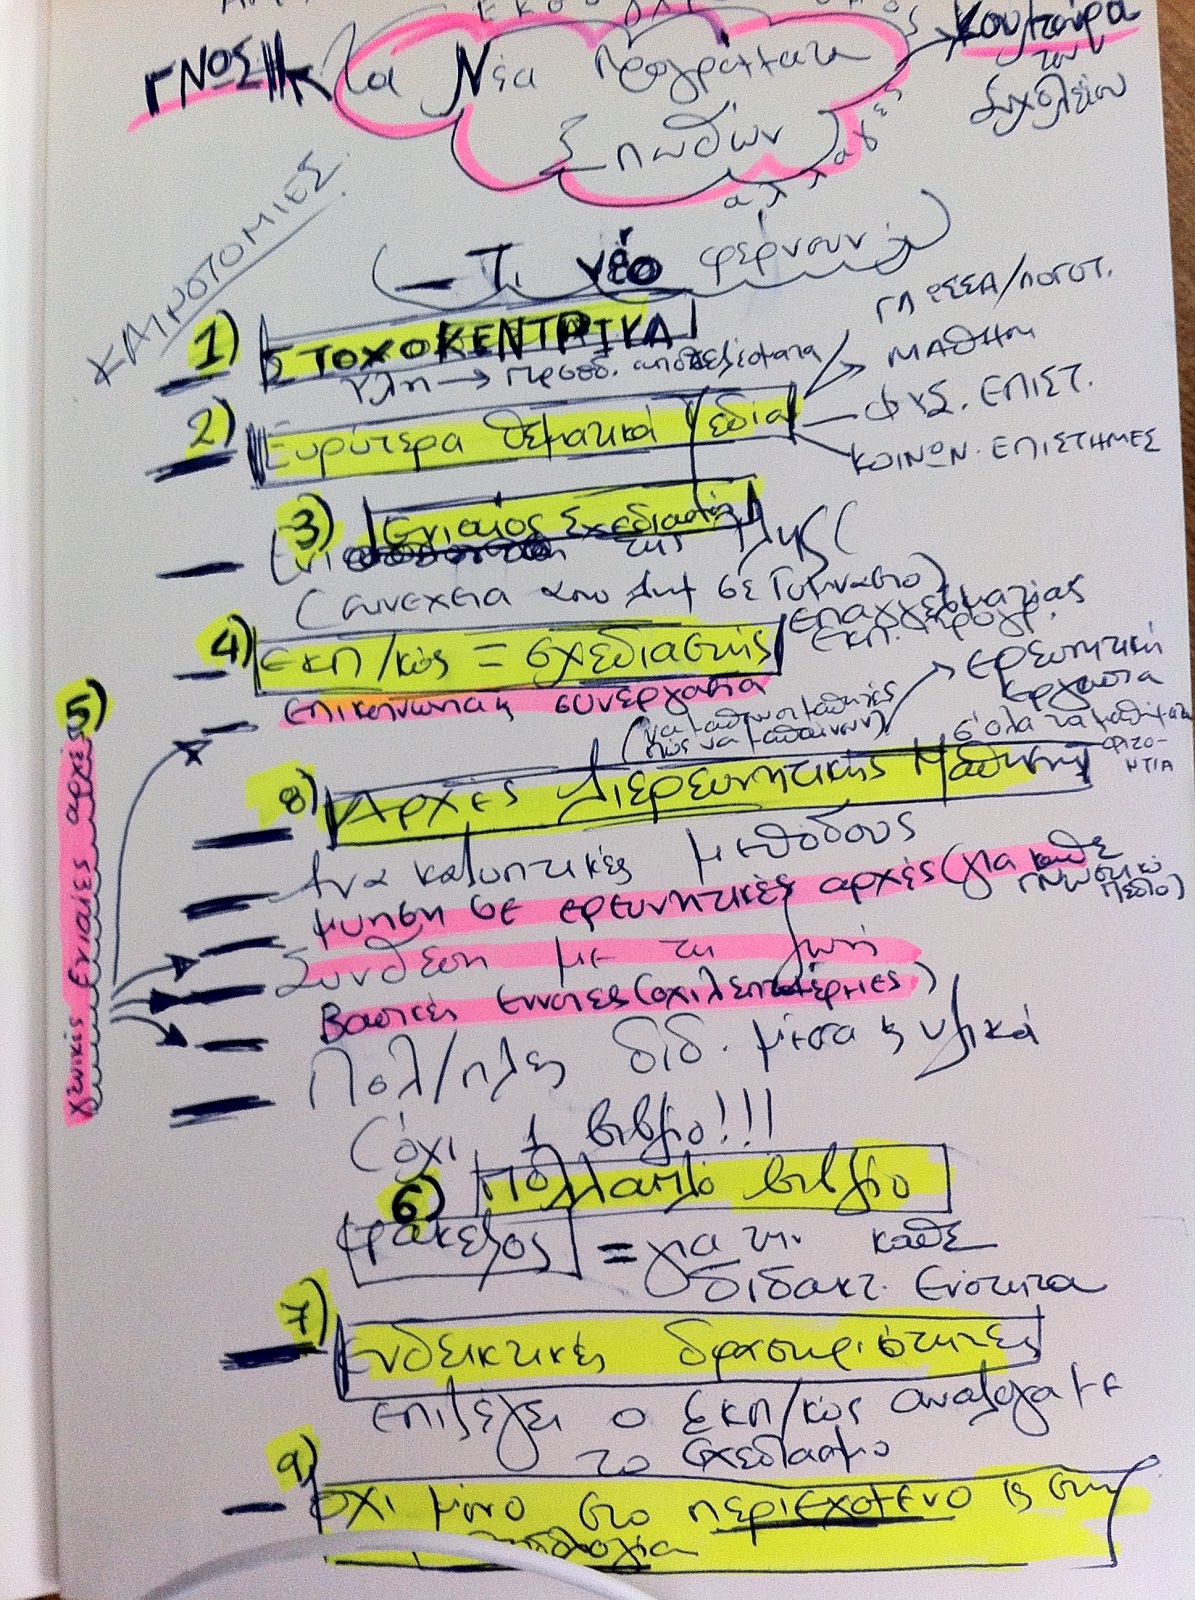 ΓΝΩΣΗ
τα Νέα Προγράμματα
Σπουδών
αλλαγές
Κουλτούρα
του
Σχολείου
ΚΑΙΝΟΤΟΜΙΕΣ
- Τι νέο φέρνουν
1) ΣΤΟΧΟΚΕΝΤΡΙΚΑ
Ύλη → προσδ. αποτελέσματα
2) Ευρύτερα θεματικά Πεδία
ΓΛΩΣΣΑ/ΛΟΓΟΤ.
ΜΑΘΗΜ
ΦΥΣ. ΕΠΙΣΤ.
ΚΟΙΝΩΝ. ΕΠΙΣΤΗΜΕΣ
3) Ενιαίος Σχεδιασμός
της ύλης
(συνέχεια από Δημ σε Γυμνάσιο)
4) εκπ/κός = σχεδιαστής
επαγγελματίας
εκπ. προγρ.
επικοινωνία κ συνεργασία
5) γενικές ενιαίες αρχές
(να μάθουν οι μαθητές
πώς να μαθαίνουν)
ερευνητική
εργασία
σ' όλα τα μαθήματα
8) Αρχές Διερευνητικής Μάθησης
Ανακαλυπτικές μεθόδους
μύηση σε ερευνητικές αρχές (για κάθε
γνωστικό
πεδίο)
Σύνδεση με τη ζωή
Βασικές έννοιες (όχι λεπτομέρειες)
Πολ/πλές διδ. μέσα κ υλικά
(όχι 1 βιβλίο!!!
6) πολλαπλό βιβλίο
φάκελος = για την κάθε
διδακτ. Ενότητα
7) Ενδεικτικές δραστηριότητες
επιλέγει ο εκπ/κός ανάλογα με
το σχεδιασμό
9) όχι μόνο στο περιεχόμενο κ στη